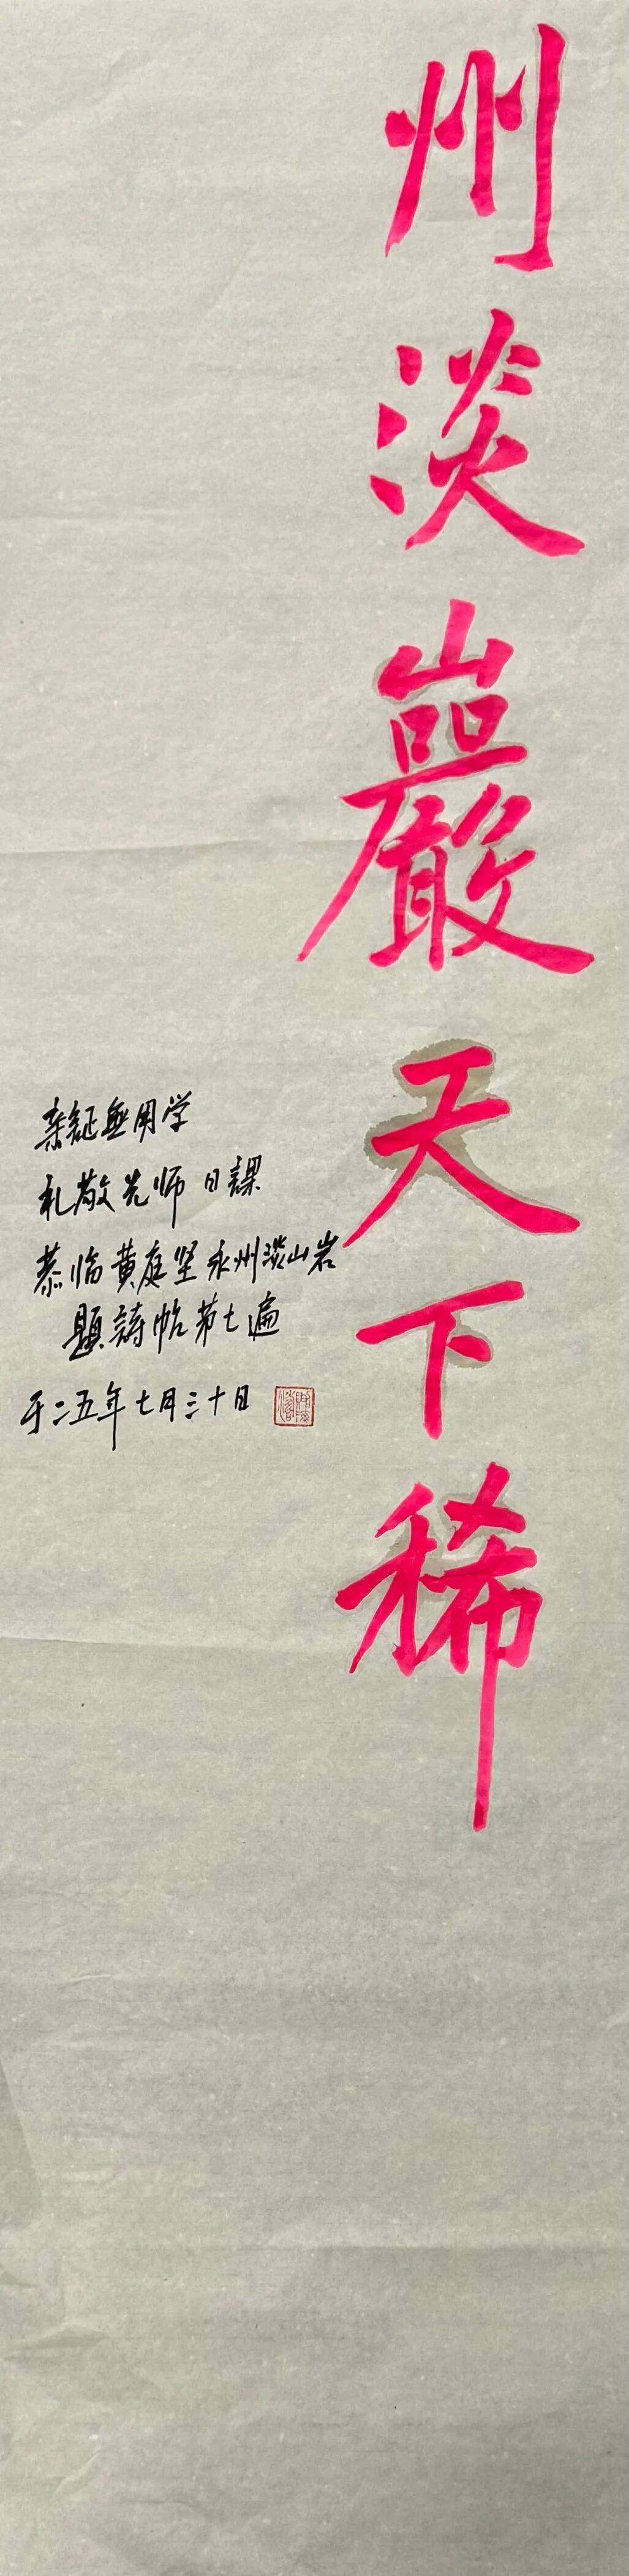 州淡巖天下稀
亲証無用学
礼敬先师 日課
恭临黄庭坚永州淡山岩
題詩帖第七遍
于二五年七月三十日